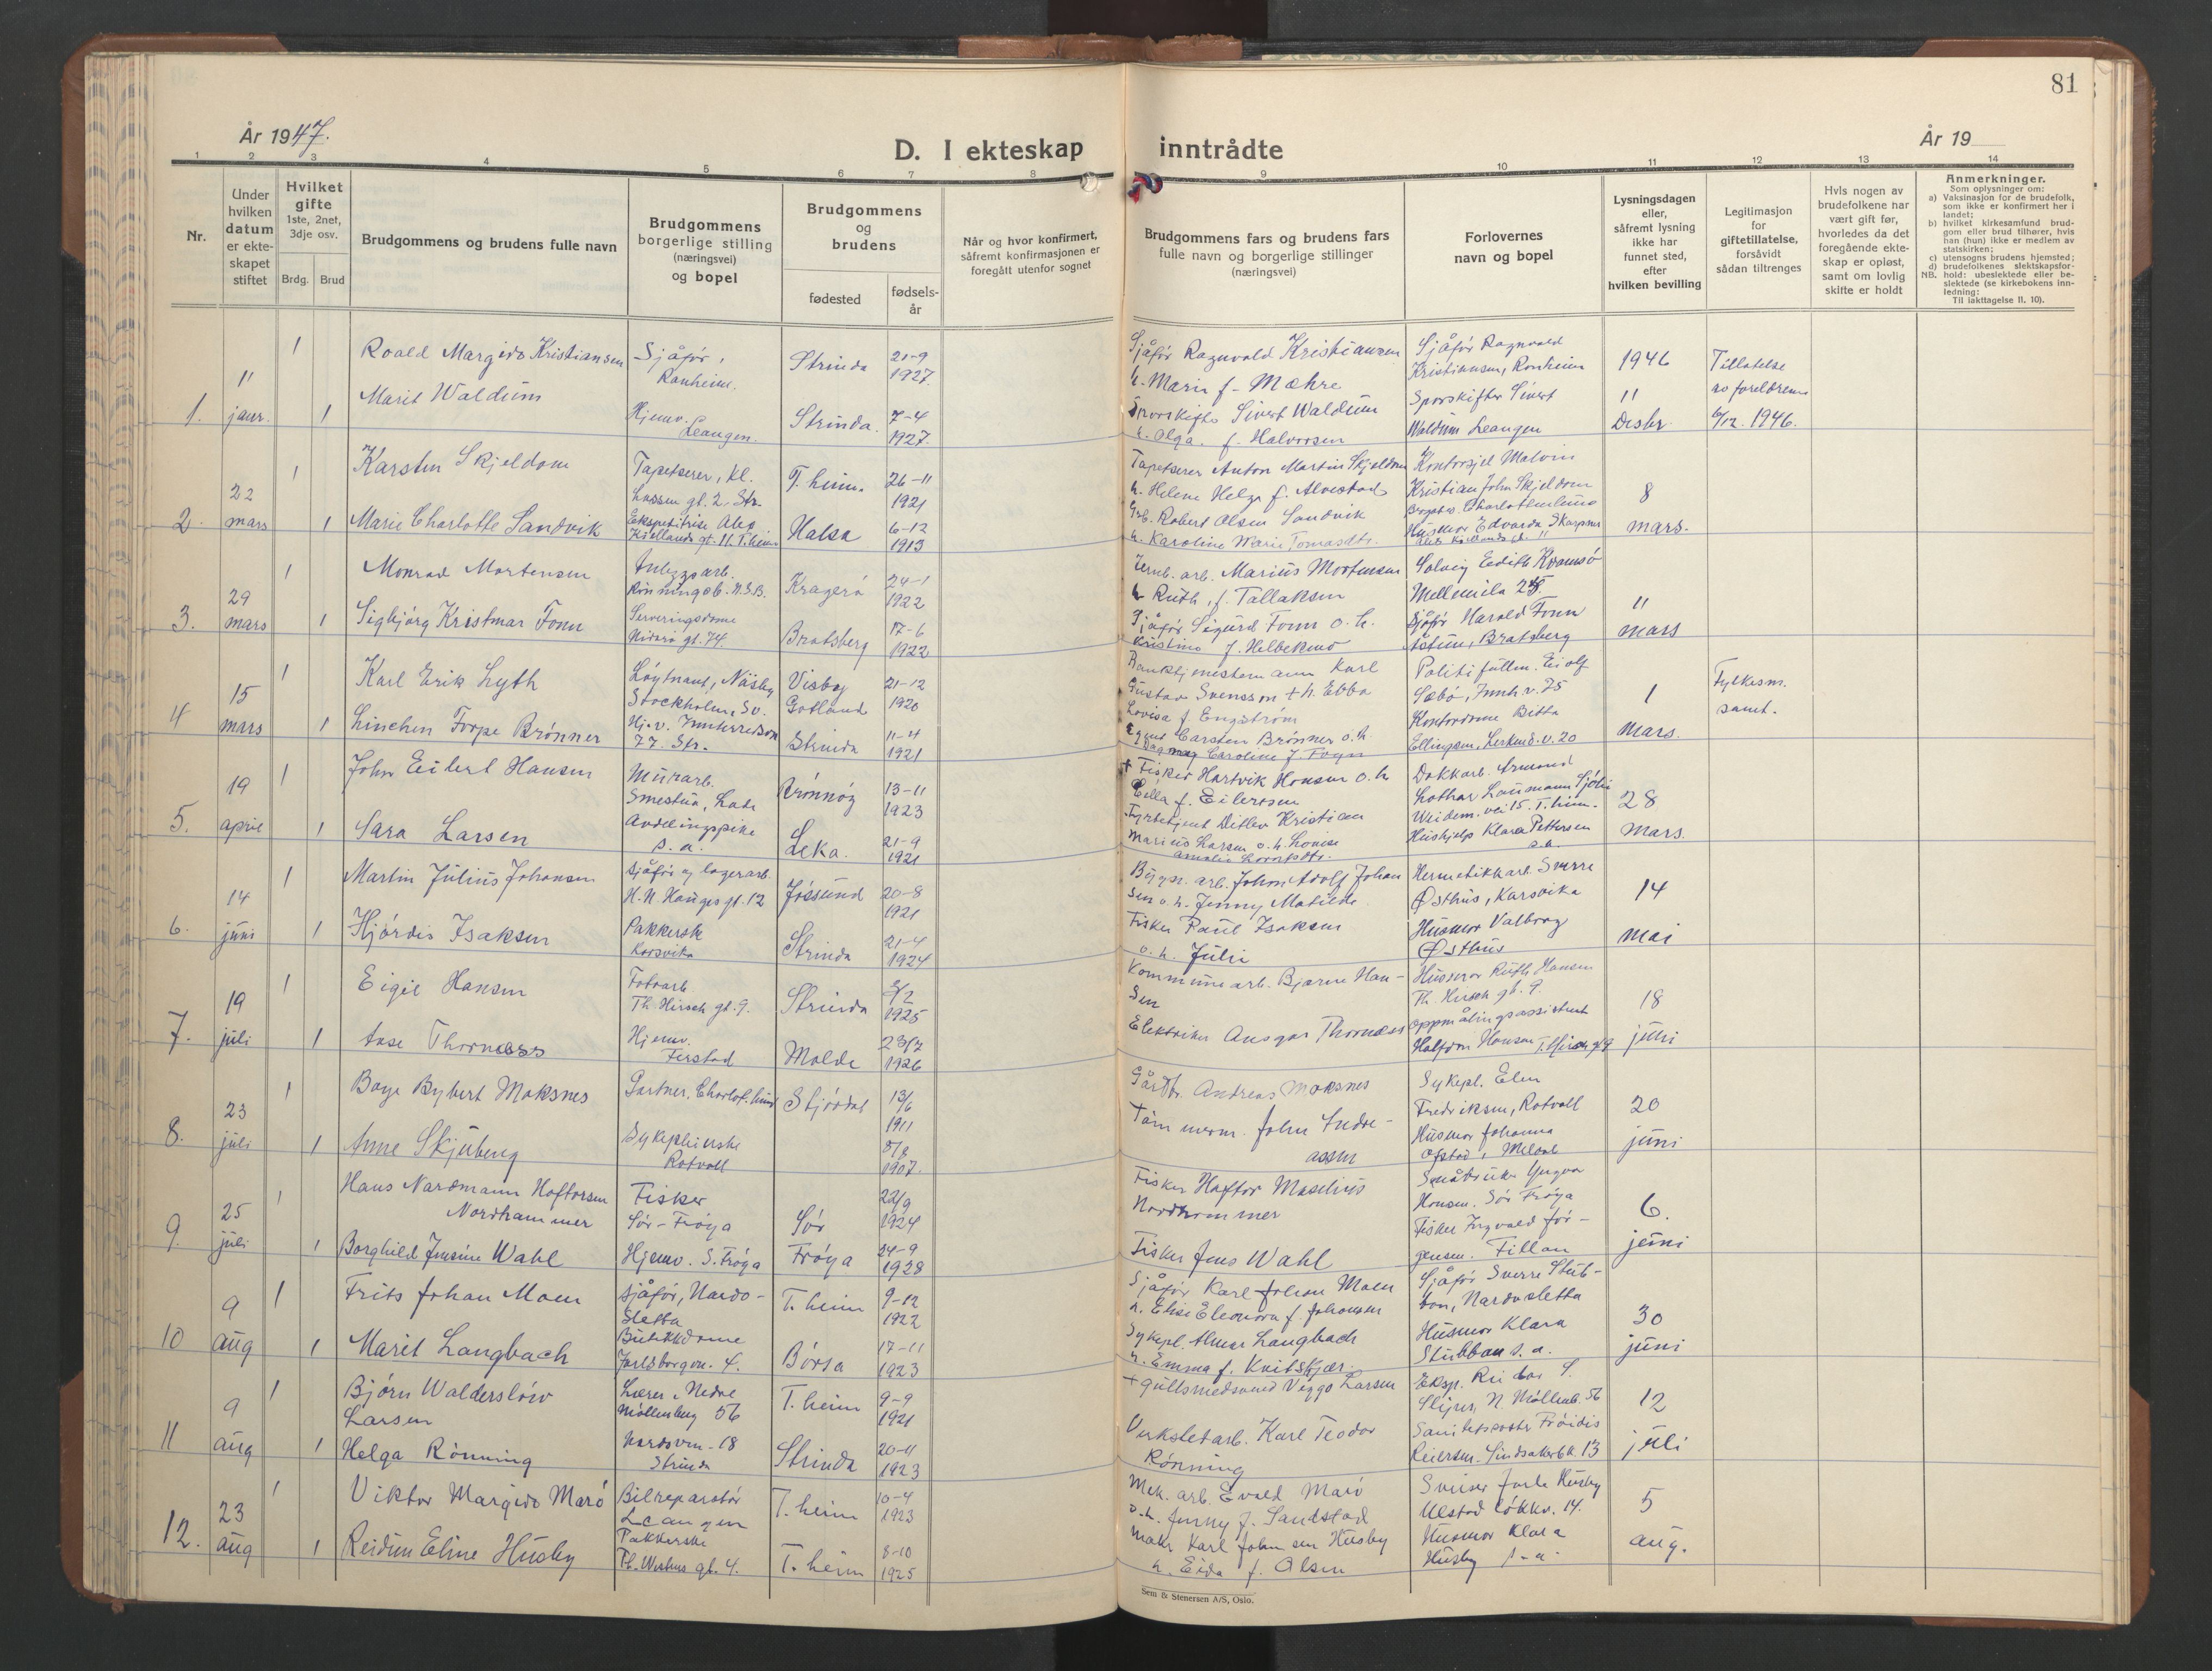 81
År 1947.
D. I ekteskap inntrådte
År 19
1 2 3 4 5 6 7 8 9 10 11 12 13 14
Nr.
Under
hvilken
datum
er ekte-
skapet
stiftet
Hvilket
gifte
1ste, 2net,
3dje osv.
Brdg. Brud
Brudgommens og brudens fulle navn
Brudgommens
borgerlige stilling
(næringsvei)
og bopel
Brudgommens
og
brudens
fødested
fødsels-
år
Når og hvor konfirmert,
såfremt konfirmasjonen er
foregått utenfor sognet
Brudgommens fars og brudens fars
fulle navn og borgerlige stillinger
(næringsvei)
Forlovernes
navn og bopel
Lysningsdagen
eller,
såfremt lysning
ikke har
funnet sted,
efter
hvilken bevilling
Legitimasjon
for
giftetillatelse,
forsåvidt
sådan tiltrenges
Hvis nogen av
brudefolkene har
vært gift før,
hvorledes da det
foregående ekte-
skap er opløst,
samt om lovlig
skifte er holdt
Anmerkninger.
Som oplysninger om:
a) Vaksinasjon for de brudefolk,
som ikke er konfirmert her i
landet;
b) hvilket kirkesamfund brud-
gom eller brud tilhører, hvis
han (hun) ikke er medlem av
statskirken;
c) utensogns brudens hjemsted;
d) brudefolkenes slektskapsfor-
NB. hold: ubeslektede eller be-
slektede (se kirkebokens inn-
ledning:
Til iakttagelse II. 10).
1. 11 jaur.
1 Roald Margido Kristiansen
Sjåfør, Ranheim.
Strinda 21-9 1927.
Sjåfør Ragnvald Kristiansen
h. Marie f. Mæhre
Sjåfør Ragnvald
Kristiansen, Ranheim
1946 11 Desbr.
Tillatelse
av foreldrene
6/12. 1946.
1 Marit Waldum
Hjemv. Leangen.
Strinda. 7-4 1927.
Sporskifter Sivert Waldum
h. Olga. f. Halvorsen
Sporskifter Sivert
Waldum Leangen
2. 22 mars
1 Karsten Skjeldom
Tapetserer, Kl.
Lassen gt. 2. Str.
T.heim. 26-11 1921
Tapetserer Anton Martin Skjeldom
h. Helene Helga f. Alvestad
Kristian John Skjeldom
8 mars.
1 Marie Charlotte Sandvik
Ekspeditrise Alex.
Kiellands gt. 11. T.heim
Halsa 6-12 1913
Grb. Robert Olsen Sandvik
h. Karoline Marie Tomasdtr.
Husmor Edvarda Skarpnes
3. 29 mars
1 Monrad Mortensen
Anleggsarb.
Kragerø 24-1 1922
Jernb. arb. Marius Mortensen
h Ruth, f. Tallaksen
Solveig Edith Kvamsø
Mellemila 25.
11 mars
1 Sigbjørg Kristmar Fonn
Serveringsdame
Nidarø gt. 74.
Bratsberg 17-6 1922
Sjåfør Sigurd Fonn o. h.
Kristine f. Helbekmo
Sjåfør Harald Fonn
Åsheim, Bratsberg
4 15 mars
1 Karl Erik Lyth
Løytnant, Näsby
Stockholm, Sv.
Visby Gotland 21-12 1920
Banktjenestemann Karl
Gustav Svensson + h. Ebba
Lovisa f. Engström
Politifullm. Eiolf
Sæbø, Innh. v. 75
1 mars.
Fylkesm.
samt.
1 Linchen Torpe Brønner
Hj. v. Innherredsvn
77. Str.
Strinda 11-4 1921
Agent Carsten Brønner o. h.
Dagmag Caroline f. Fogn
Kontordame Bitta
Ellingsen, Lerkend. v. 20
5. 19 april
1 John Eilert Hansen
Murarb.
Smestua, Lade
Brønnøy 13-11 1923
+ Fisker Hartvik Hansen o. h
Ella f. Eilertsen
Dokkarb. Armand
Lothar Laumann Sjøli
Weidem. vei 15. T.heim.
28 mars.
1 Sara Larsen
Avdelingspike
s. a.
Leka. 21-9 1921
Fyrbetjent Ditlev Kristian
Marius Larsen o. h. Lovise
Amalie Lorentsdtr.
Hushjelp Klara Pettersen
s. a.
6. 14 juni
1 Martin Julius Johansen
Sjåfør og lagerarb.
H. N. Hauges gt. 12
Jøssund 20-8 1921
Bygn. arb. Johan Adolf Johan
sen o. h. Jenny Matilde
Hermetikkarb. Sverre
Østhus, Karsvika
14 mai
1 Hjørdis Isaksen
Pakkerske
Korsvika
Strinda 21-4 1924
Fisker Paul Isaksen
o. h. Julie
Husmor Valborg
Østhus
7. 19 juli
1 Eigil Hansen
Fotoarb.
Th. Hirsch gt. 9.
Strinda 1925
Kommunearb. Bjarne Han-
sen
Husmor Ruth Hansen
Th. Hirsch gt. 9.
18 juni
1 Aase Thornæss
Hjemv.
Ferstad
Molde 23/7 1926
Elektriker Ansgar Thornæss
Oppmålingsassistent
Halfdan Hansen T. Hirsch gt 9
8. 23 juli
1 Boye Bybert Moksnes
Gartner, Charlot.lund
Stjørdal 13/6 1911
Gårdbr. Andreas Moksnes
Sykepl. Elen
Fredriksen, Rotvoll
20 juni
1 Anne Skjuberg
Sykepleierske
Rotvoll
8/8 1907.
Tømmerm. John Indre-
assen
Husmor Johanna
Ofstad, Meldal
9. 25 juli
1 Hans Nardmann Haftorsen
Nordhammer
Fisker
Sør-Frøya
Sør 22/9 1924
Fisker Haftor Maselius
Nordhammer
Småbruker Yngvar
Hansen. Sør Frøya
6. juni
1 Borghild Jensine Wahl
Hjemv. S. Frøya
Frøya 24-9 1928
Fisker Jens Wahl
Fisker Ingvald Jør-
gensen. Fillan
10 9 aug
1 Frits Johan Moen
Sjåfør, Nardo-
sletta
T. heim 9-12 1922
Sjåfør Karl Johan Moen
h. Elise Eleonora f. Johansen
Sjåfør Sverre Stub-
ban, Nardosletta
30 juni
1 Marit Langbach
Butikkdame
Jarlsborgvn. 4.
Børsa 17-11 1923
Sykepl. Almar Langbach
h. Emma f. Kvitskjær.
Husmor Klara
Stubban s. a.
11 9 aug
1 Bjørn Walderslöw
Larsen
Lærer, Nedre
Møllenberg 56
T. heim 9-9 1921
+ Gullsmedsvend Viggo Larsen
Eksp. Reidar S.
N. Møllenb. 56
12 juli
1 Helga Rønning
Nardovn. 18
Strinda
Strinda 20-11 1923
Verkstedarb. Karl Teodor
Rønning
Sanitetssøster Frøidis
Reiersen. Lindsakerbk. 13
12. 23 aug
1 Viktor Margido Marø
Bilreparatør
Leangen
T. heim 10-4 1923
Mek. arb. Evald Marø
o. h. Jenny f. Sandstad
Sveiser Jarle Husby
Ulstad Løkkv. 14.
5 aug.
1 Reidun Eline Husby
Pakkerske
Th. Wirhus gt. 4.
T. heim 8-10 1925
Maler Karl Johansen Husby
h. Eida f. Olsen
Husmor Klara
Husby s. a.
Sem & Stenersen A/S, Oslo.